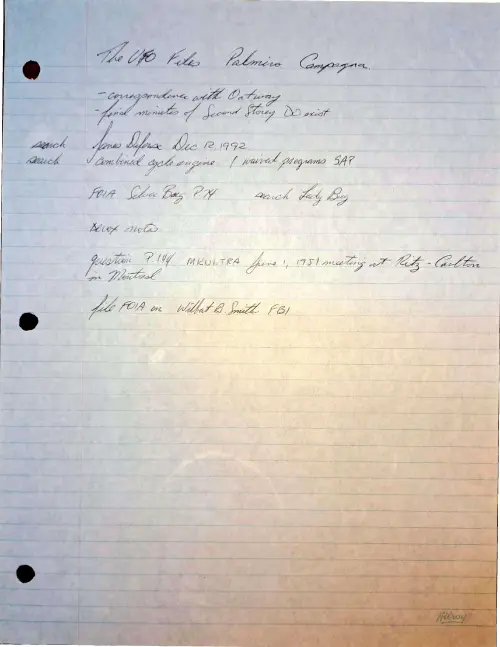 The UFO Files Palmiro Campagna
- correspondence with Ontway
- final minutes of Second Storey DO exist
search Janes Defense Dec 12, 1992
search combined cycle engine / waived programs SAP
FOIA Silver Bug P. 14 search Lady Bug
xerox notes
question P. 144 MKULTRA June 1, 1951 meeting at Ritz-Carlton
in Montreal
file FOIA on Wilbert B. Smith FBI